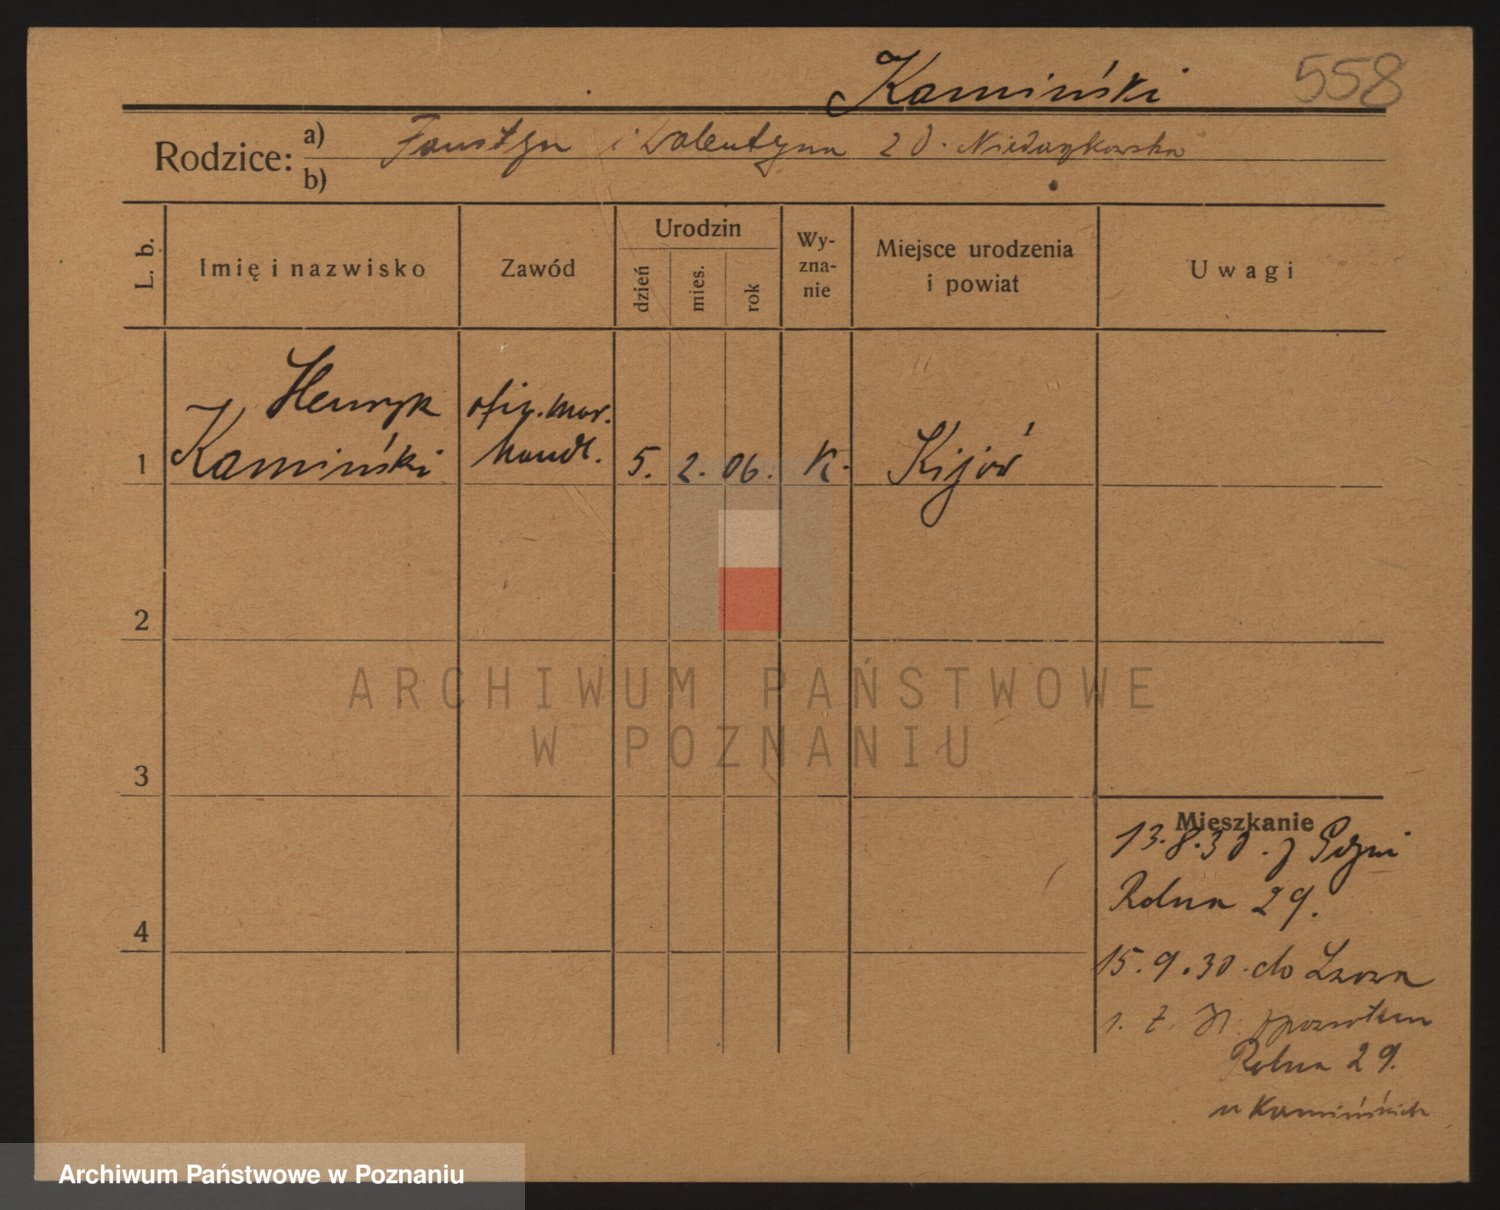 Kamiński 558
Rodzice: a) Faustyn i Walentyna z d.
b)
L. b. Imię i nazwisko Zawód Urodzin dzień mies. rok Wy-zna-nie Miejsce urodzenia i powiat Uwagi
Henryk ofic. mar.
1 Kamiński handl. 5. 2. 06. K. Kijów
2
ARCHIWUM PAŃSTWOWE
W POZNANIU
3
Mieszkanie
13.8.30. z Gdyni
Rolna 29.
4
15.9.30. do Lwowa
1. powrotem
Rolna 29.
u Kamińskich
Archiwum Państwowe w Poznaniu